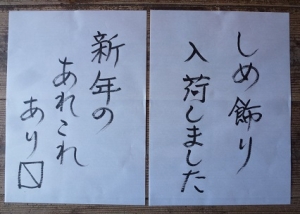 しめ飾り
入荷しました
新年の
あれこれ
あり〼